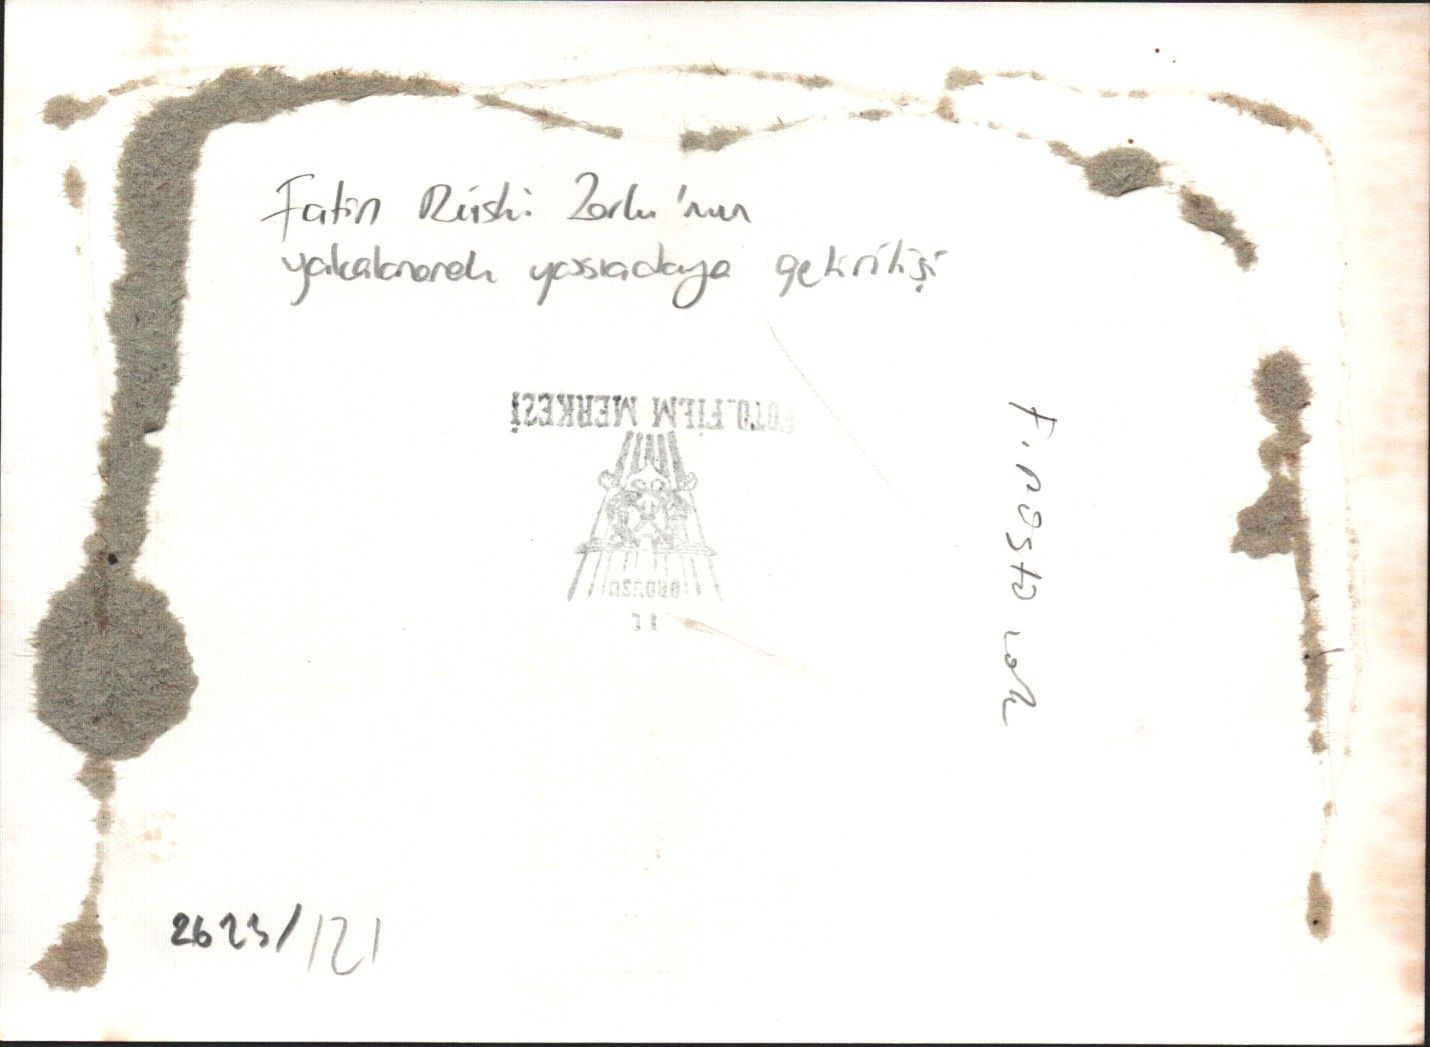 Fatin Rüştü Zorlu'nun
yakalanarak yassıadaya getirilişi
FOTO_FİLM MERKESİ
ORDUSU
F. RÜştü
2623/121